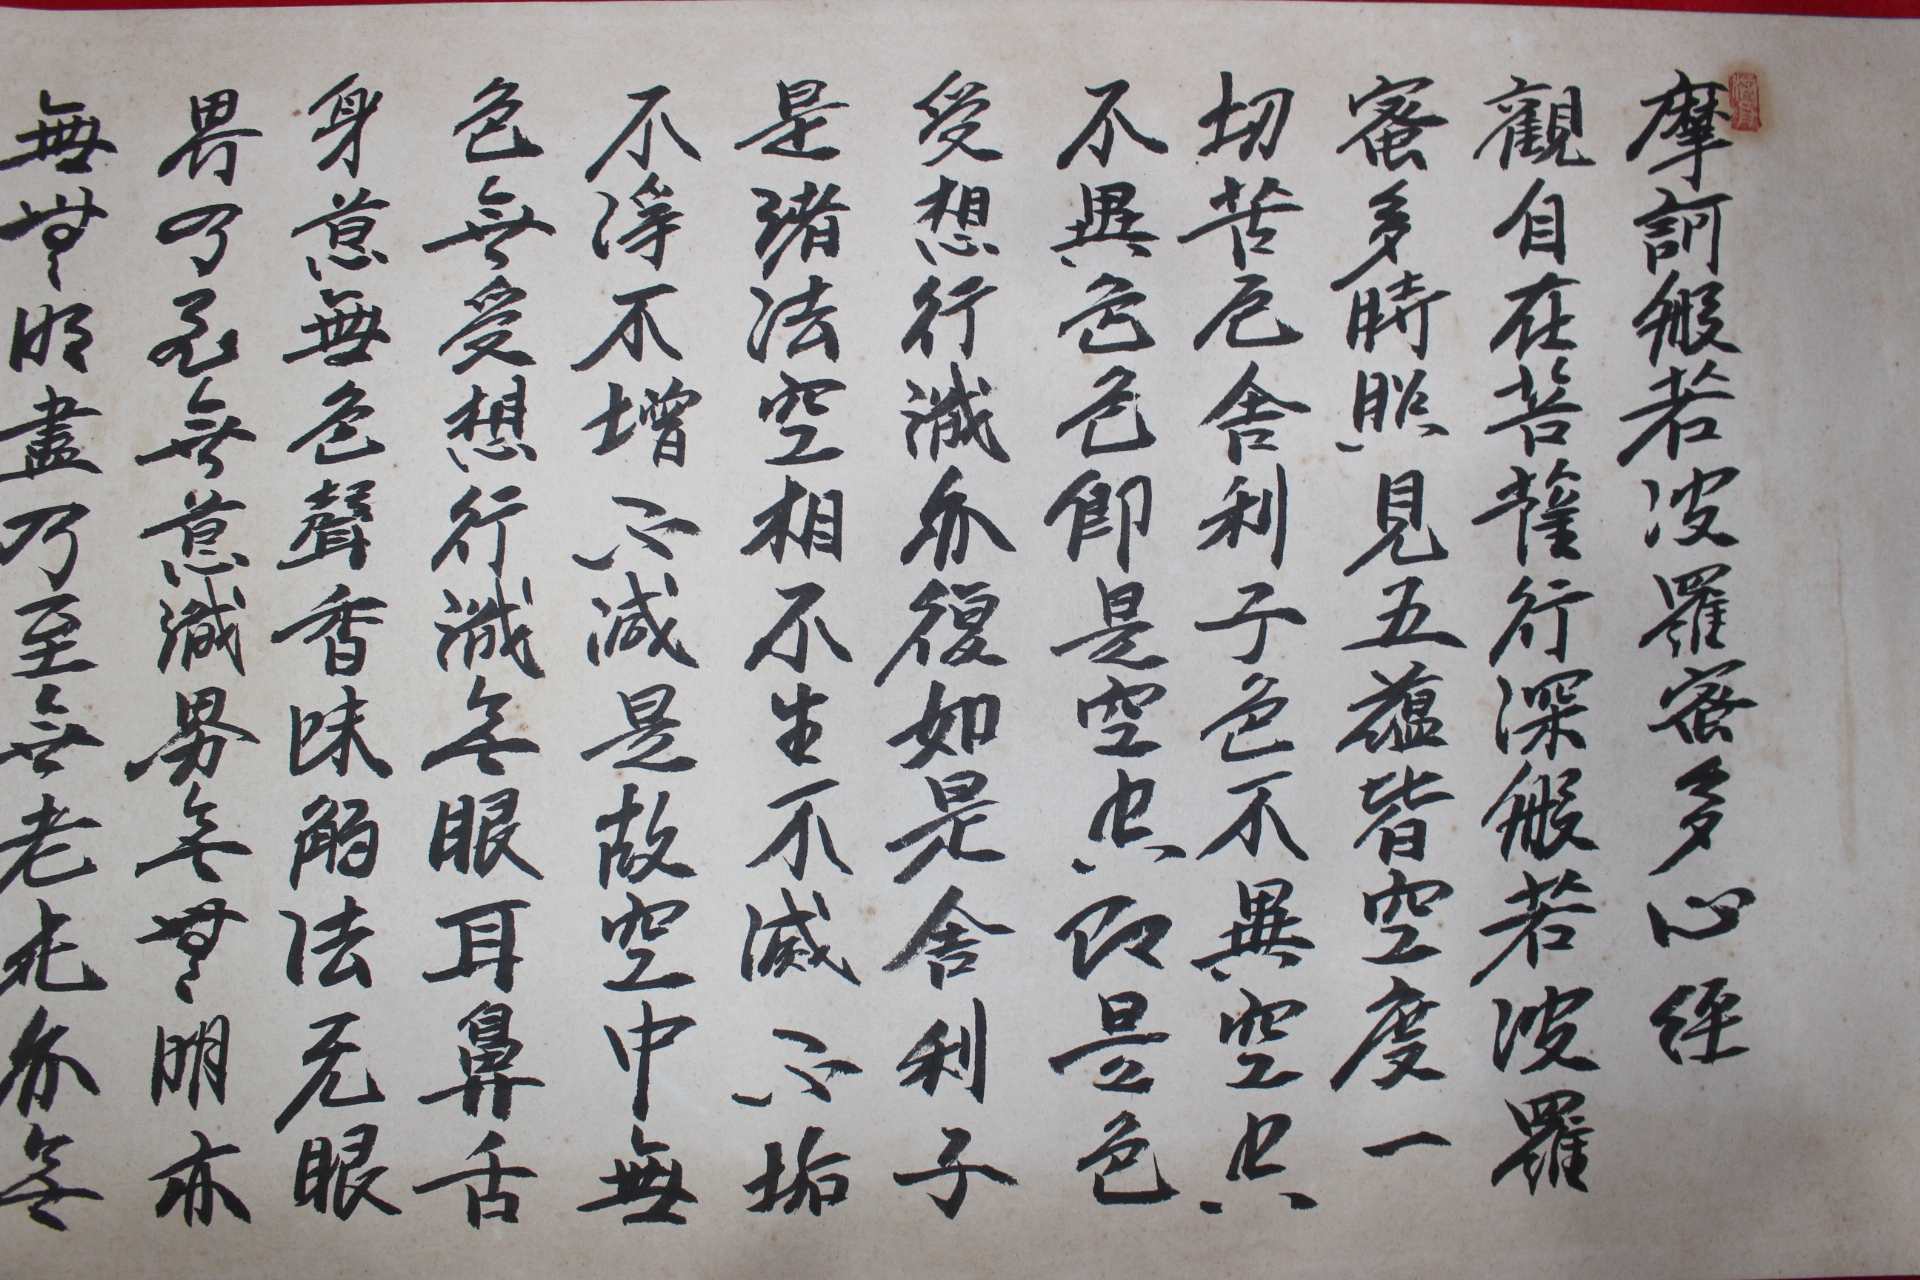 摩訶般若波羅蜜多心經
觀自在菩薩行深般若波羅
蜜多時照見五蘊皆空度一
切苦厄舍利子色不異空空
不異色色即是空空即是色
受想行識亦復如是舍利子
是諸法空相不生不滅不垢
不淨不增不減是故空中無
色無受想行識無眼耳鼻舌
身意無色聲香味觸法无眼
界乃至無意識界無無明亦
無無明盡乃至無老死亦無